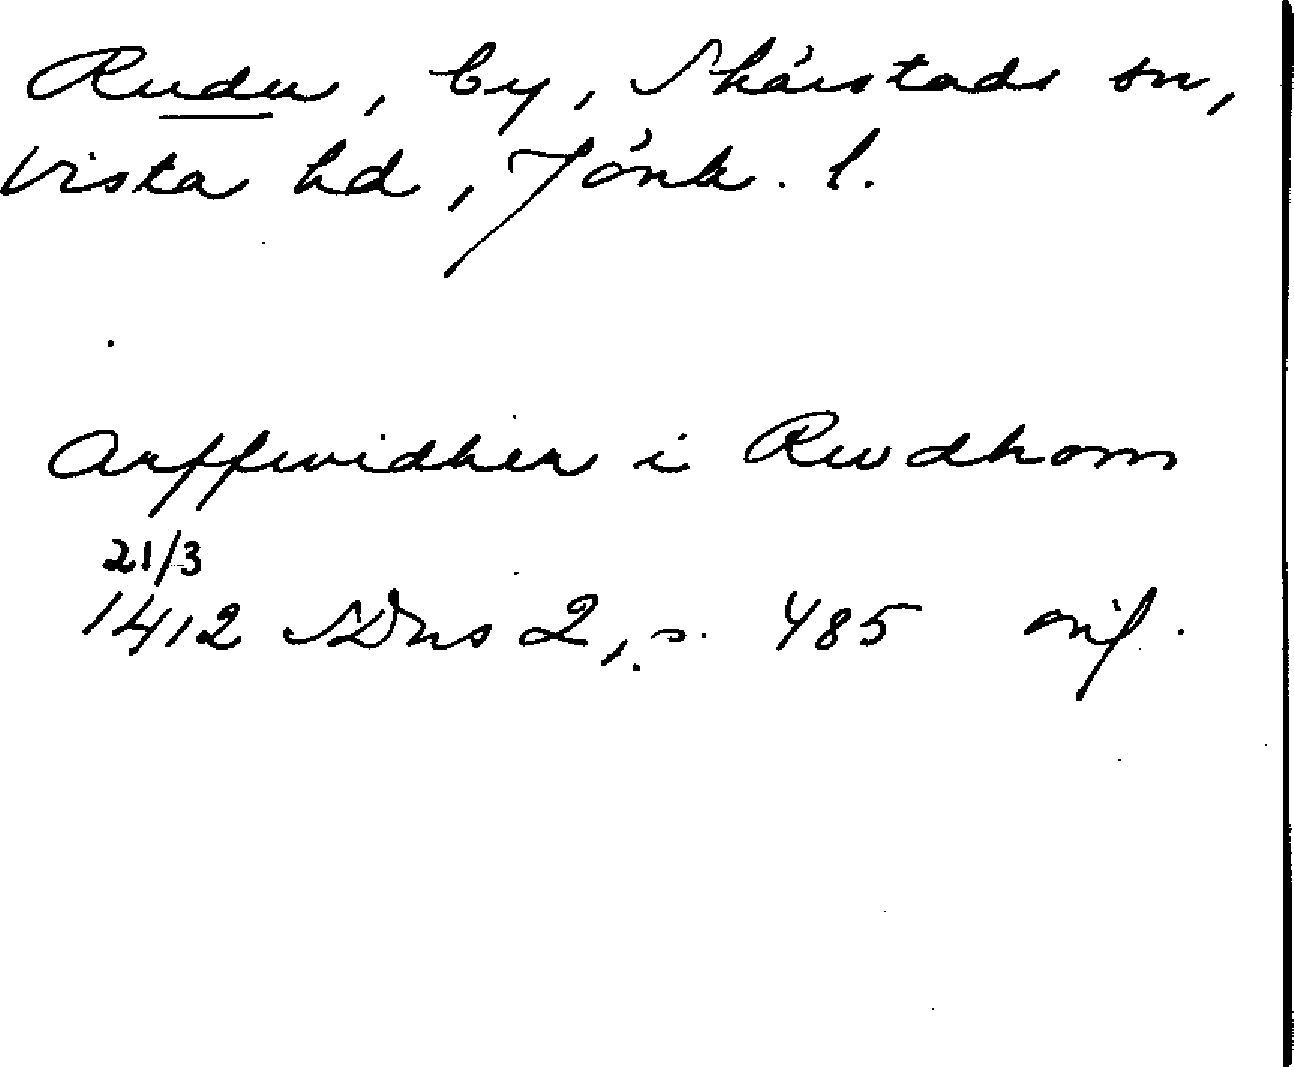 Rudu, by, Skärstads sn,
Vista hd, Jönk. l.
Arffwidher i Rwdhom
21/3
1412 SDns 2, s. 485 mf.